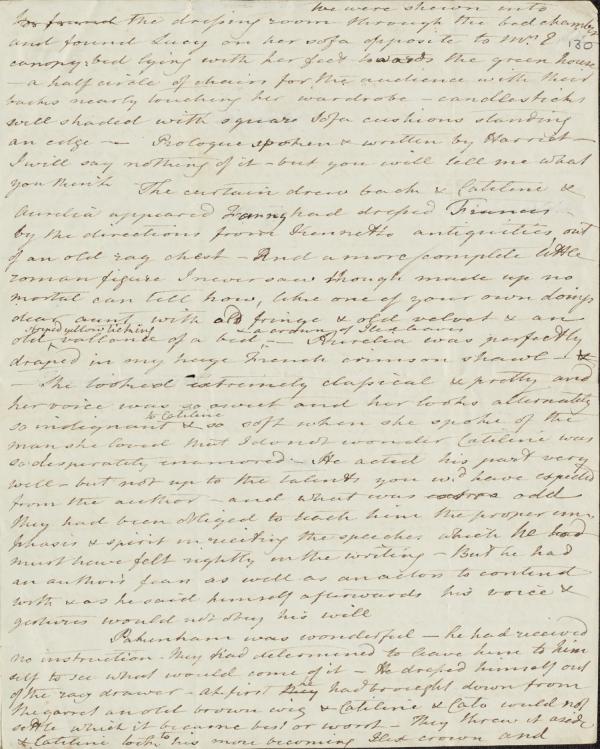 we were shewn into
the dressing room through the bed chamber
130
and found Lucy on her sofa opposite to Mrs. E
canopy bed lying with her feet towards the green house
– a half circle of chairs for the audience with their
backs nearly touching her wardrobe – candlesticks
well shaded with square sofa cushions standing
an edge – Prologue spoken & written by Harriet –
I will say nothing of it – but you will tell me what
you think The curtain drew back & Catiline &
Aurelia appeared Fanny had dressed Francis –
by the directions from antiquities out
of an old rag chest – And a more complete little
roman figure I never saw though made up no
mortal can tell how, like one of your own doings
dear aunt with old fringe & old velvet & an
striped yellow ticking – a crown of Ilex leaves
old vallance of a bed, – Aurelia was perfectly
draped in my huge French crimson shawl – &
– She looked extremely classical & pretty and
her voice was so sweet and her looks alternately
to Catiline
so indignant & so soft when she spoke of the
man she loved that I do not wonder Catiline was
so desperately enamored – He acted his part very
well – but not up to the talents you wd. have expected
from the author – and what was odd
they had been obliged to teach him the proper em
phasis & spirit in reciting the speeches which he had
must have felt rightly in the writing – But he had
an author's fears as well as an actors to contend
with & as he said himself afterwards his voice &
gestures would not obey his will
Pakenham was wonderful – he had received
no instruction – They had determined to leave him to him
self to see what would come of it – He dressed himself out
of the rag drawer – At first they had brought down from
the garret an old brown wig & Catiline & Cato would not
settle which it became best or worst – They threw it aside
& Catiline took to his more becoming Ilex crown and